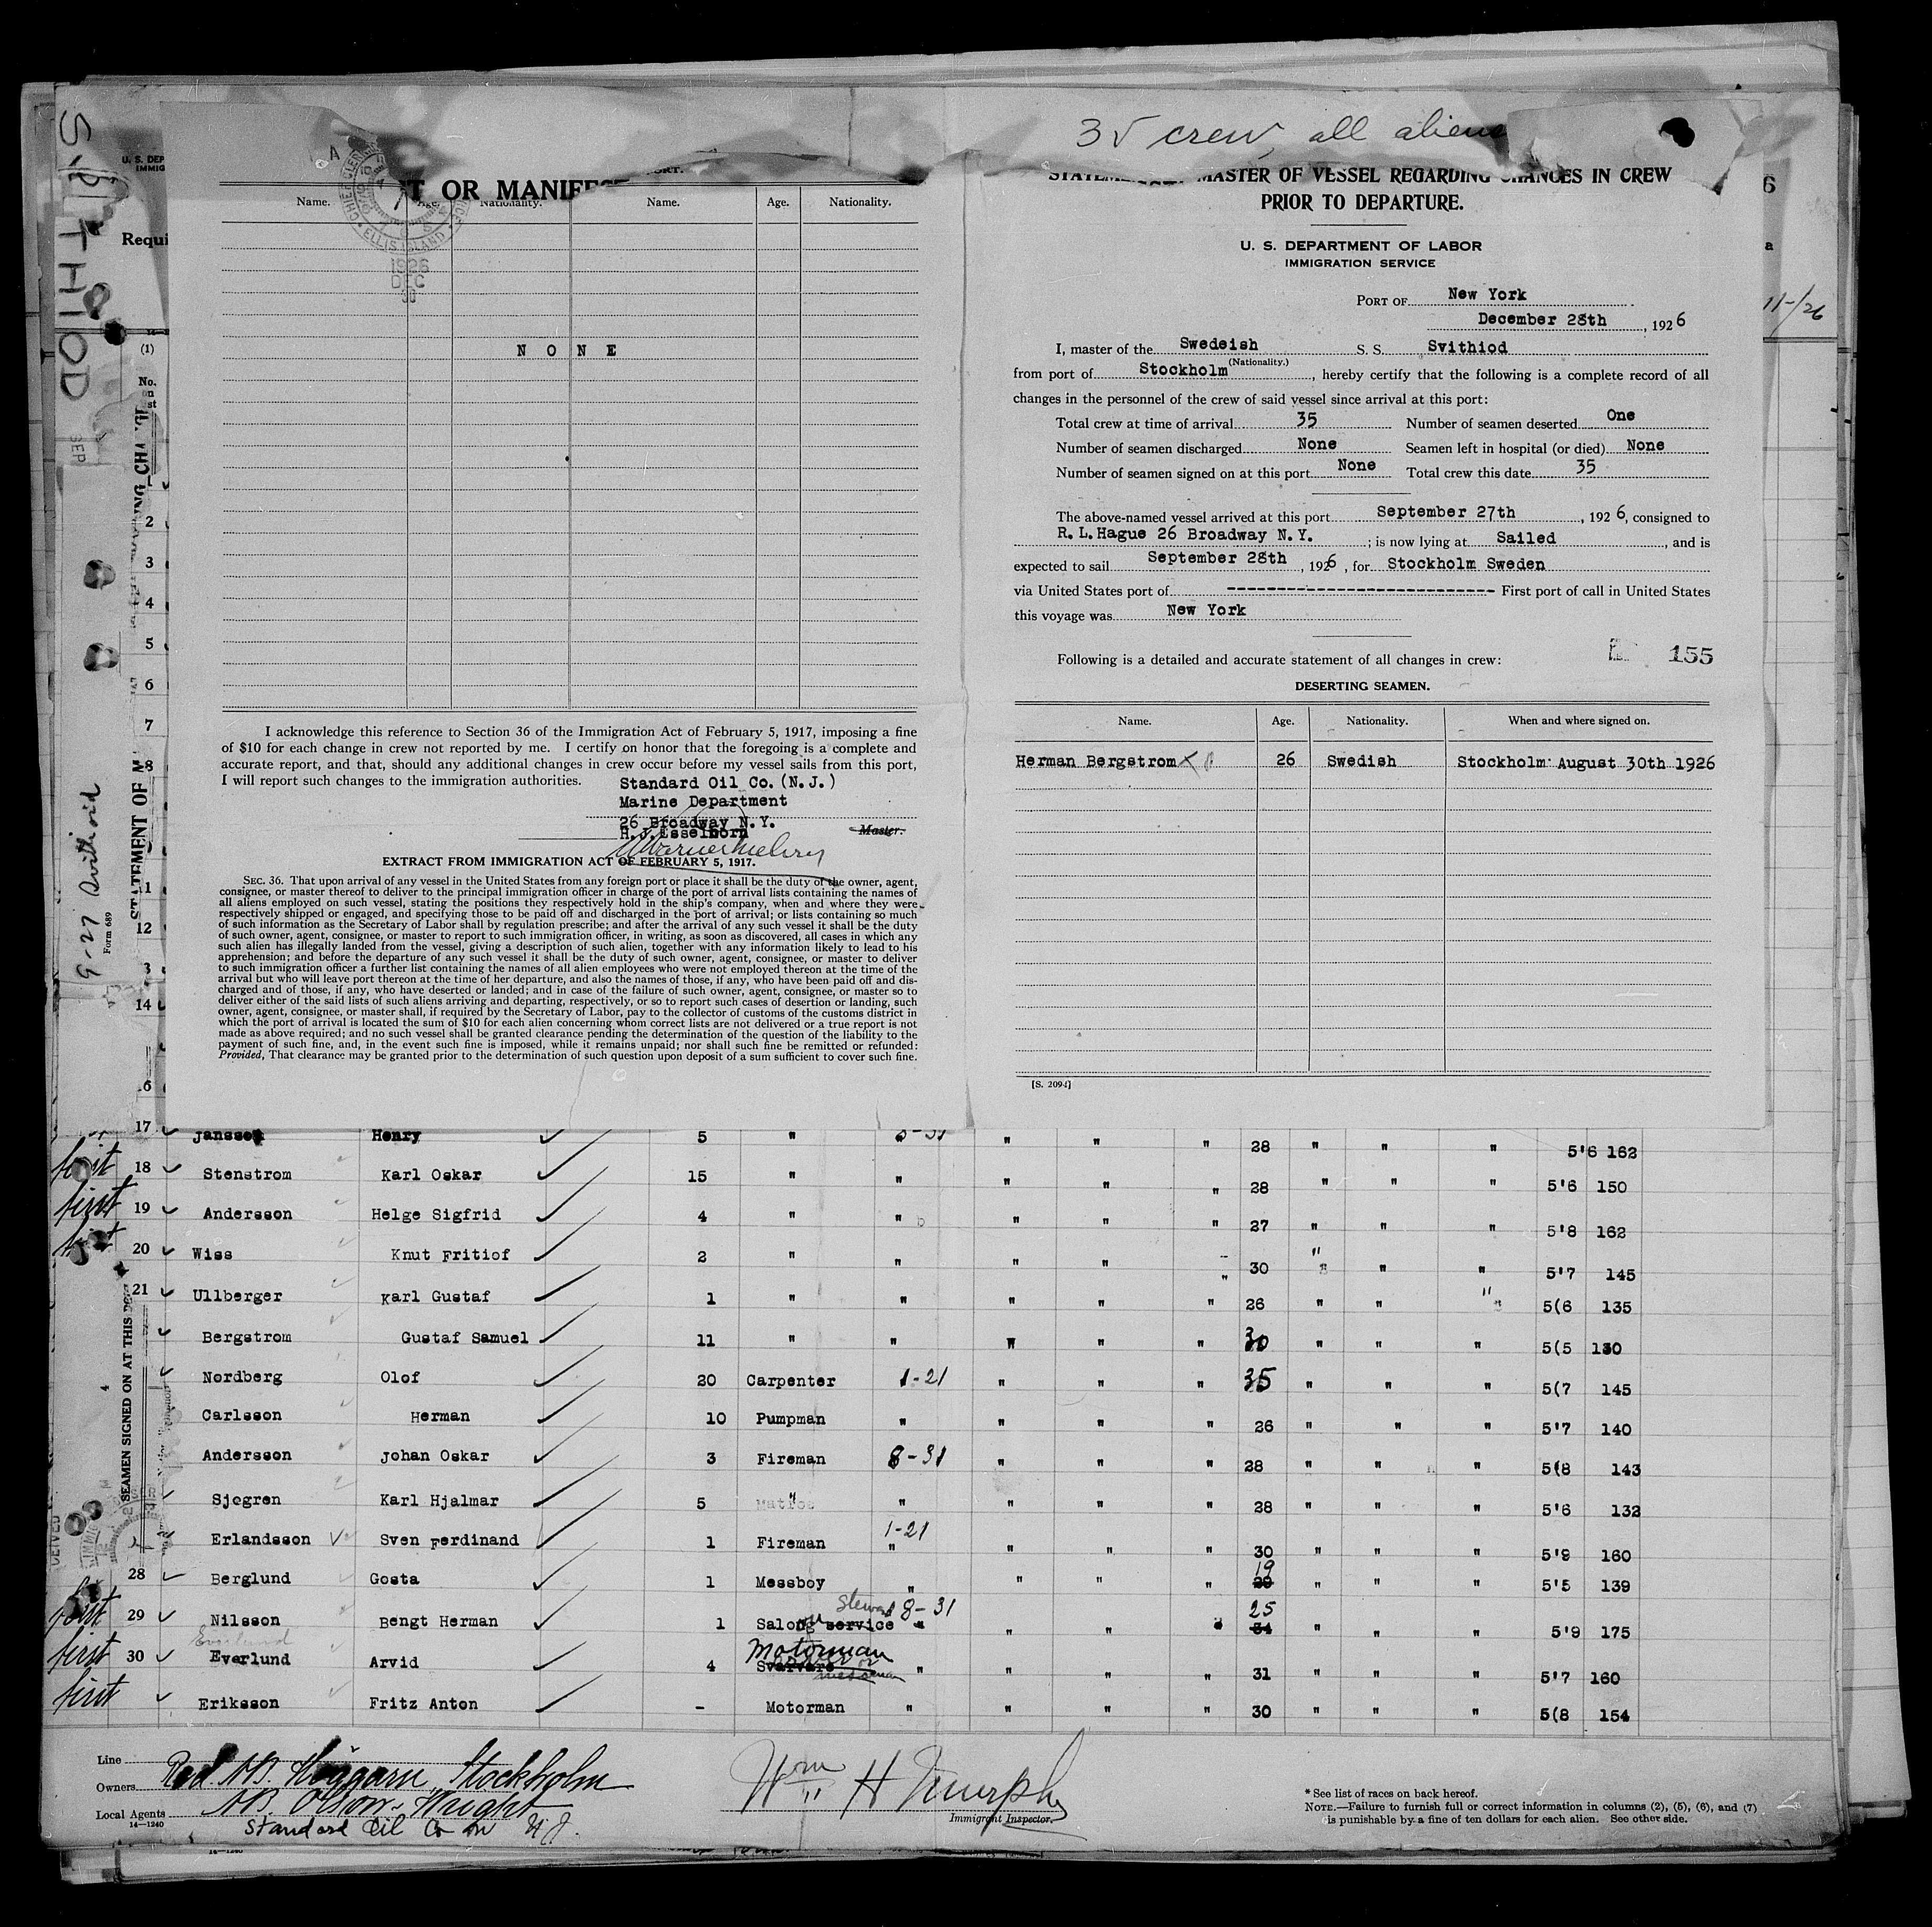 35 crew, all aliens
SVITHIOD
U. S. DEP
IMMIG
Requi
T OR MANIFEST
Name. Age. Nationality. Name. Age. Nationality.
CHIEF
ELLIS ISLAND
1926
DEC
30
N O N E
I acknowledge this reference to Section 36 of the Immigration Act of February 5, 1917, imposing a fine
of $10 for each change in crew not reported by me. I certify on honor that the foregoing is a complete and
accurate report, and that, should any additional changes in crew occur before my vessel sails from this port,
I will report such changes to the immigration authorities.
Standard Oil Co. (N.J.)
Marine Department
26 Broadway N.Y.
H.J.Esselborn Master.
EXTRACT FROM IMMIGRATION ACT OF FEBRUARY 5, 1917.
SEC. 36. That upon arrival of any vessel in the United States from any foreign port or place it shall be the duty of the owner, agent,
consignee, or master thereof to deliver to the principal immigration officer in charge of the port of arrival lists containing the names of
all aliens employed on such vessel, stating the positions they respectively hold in the ship's company, when and where they were
respectively shipped or engaged, and specifying those to be paid off and discharged in the port of arrival; or lists containing so much
of such information as the Secretary of Labor shall by regulation prescribe; and after the arrival of any such vessel it shall be the duty
of such owner, agent, consignee, or master to report to such immigration officer, in writing, as soon as discovered, all cases in which any
such alien has illegally landed from the vessel, giving a description of such alien, together with any information likely to lead to his
apprehension; and before the departure of any such vessel it shall be the duty of such owner, agent, consignee, or master to deliver
to such immigration officer a further list containing the names of all alien employees who were not employed thereon at the time of the
arrival but who will leave port thereon at the time of her departure, and also the names of those, if any, who have been paid off and dis-
charged and of those, if any, who have deserted or landed; and in case of the failure of such owner, agent, consignee, or master so to
deliver either of the said lists of such aliens arriving and departing, respectively, or so to report such cases of desertion or landing, such
owner, agent, consignee, or master shall, if required by the Secretary of Labor, pay to the collector of customs of the customs district in
which the port of arrival is located the sum of $10 for each alien concerning whom correct lists are not delivered or a true report is not
made as above required; and no such vessel shall be granted clearance pending the determination of the question of the liability to the
payment of such fine, and, in the event such fine is imposed, while it remains unpaid; nor shall such fine be remitted or refunded:
Provided, That clearance may be granted prior to the determination of such question upon deposit of a sum sufficient to cover such fine.
MASTER OF VESSEL REGARDING CHANGES IN CREW
PRIOR TO DEPARTURE.
U. S. DEPARTMENT OF LABOR
IMMIGRATION SERVICE
PORT OF New York
December 28th, 1926
I, master of the Swedeish S. S. Svithiod
(Nationality.)
from port of Stockholm, hereby certify that the following is a complete record of all
changes in the personnel of the crew of said vessel since arrival at this port:
Total crew at time of arrival 35 Number of seamen deserted One
Number of seamen discharged None Seamen left in hospital (or died) None
Number of seamen signed on at this port None Total crew this date 35
The above-named vessel arrived at this port September 27th, 1926, consigned to
R.L.Hague 26 Broadway N.Y.; is now lying at Sailed, and is
expected to sail September 28th, 1926, for Stockholm Sweden
via United States port of -------------------------- First port of call in United States
this voyage was New York
Following is a detailed and accurate statement of all changes in crew: 155
DESERTING SEAMEN.
Name. Age. Nationality. When and where signed on.
Herman Bergstrom 26 Swedish Stockholm August 30th 1926
[S. 2094]
11-/26
9-27 Svithiod
Form 689
STATEMENT OF M
SEAMEN SIGNED ON AT THIS PO
(1)
No.
on
st
2
3
4
5
6
7
8
11
12
14
17 Jansson Henry 5 " " " " 28 " " " 5'6 162
first 18 Stenstrom Karl Oskar 15 " " " " " 28 " " " 5'6 150
first 19 Andersson Helge Sigfrid 4 " " " " " 27 " " " 5'8 162
first 20 Wiss Knut Fritiof 2 " " " " " 30 " " " 5'7 145
21 Ullberger Karl Gustaf 1 " " " " " 26 " " " 5(6 135
Bergstrom Gustaf Samuel 11 " " " " " 30 " " " 5(5 130
Nordberg Olof 20 Carpenter 1-21 " " " 35 " " " 5(7 145
Carlsson Herman 10 Pumpman " " " " 26 " " " 5'7 140
Andersson Johan Oskar 3 Fireman 8-31 " " " 28 " " " 5(8 143
Sjogren Karl Hjalmar 5 " " " " " 28 " " " 5'6 132
Erlandsson Sven Ferdinand 1 Fireman 1-21 " " " " 30 " " " 5'9 160
28 Berglund Gosta 1 Messboy " " " " 19 " " " 5'5 139
first 29 Nilsson Bengt Herman 1 Salong service Steward 8-31 " " " 25 34 " " " 5'9 175
first 30 Everlund Arvid 4 Svarvare Motorman " " " " 31 " " " 5'7 160
first Eriksson Fritz Anton - Motorman " " " " 30 " " " 5(8 154
Line
Owners Red. AB. Stockholm
Local Agents AB. Olson & Wright
14—1240
Standard Oil Co N.J.
Wm H Murphy
Immigrant Inspector.
* See list of races on back hereof.
NOTE.—Failure to furnish full or correct information in columns (2), (5), (6), and (7)
is punishable by a fine of ten dollars for each alien. See other side.